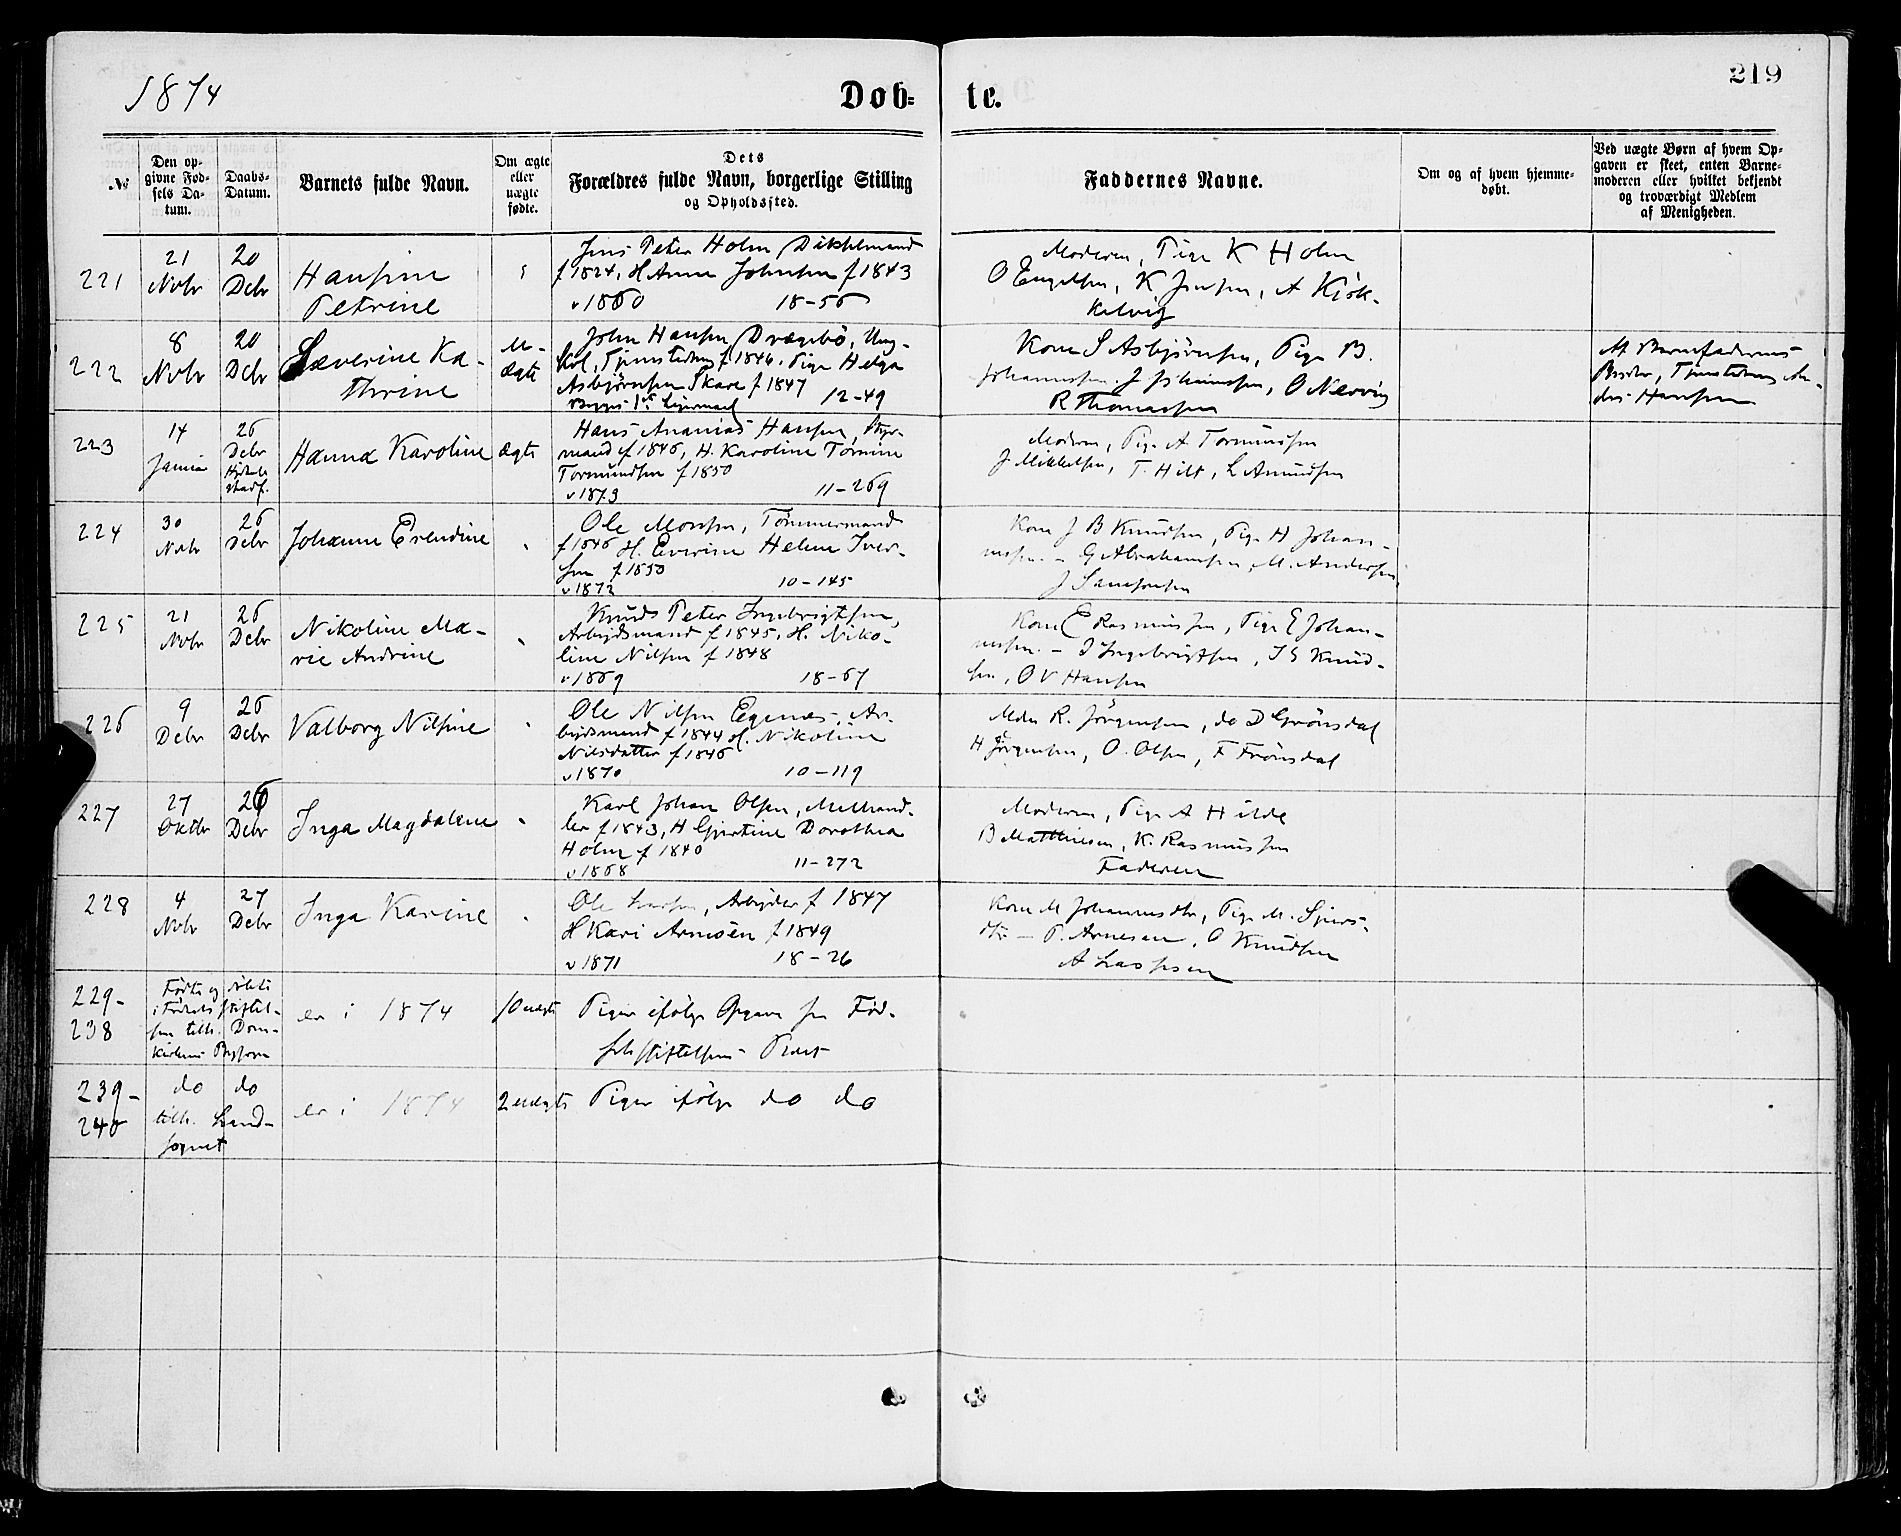 1874
Døb-
te.
219
No
Den op-
givne Fød-
sels Da-
tum.
Daabs-
Datum.
Barnets fulde Navn.
Om ægte
eller
uægte
fødte.
Dets
Forældres fulde Navn, borgerlige Stilling
og Opholdssted.
Faddernes Navne.
Om og af hvem hjemme-
døbt.
Ved uægte Børn af hvem Op-
gaven er skeet, enten Barne-
moderen eller hvilket bekjendt
og troværdigt Medlem
af Menigheden.
221
21
Novbr
20
Debr
Hansine
Petrine
Jens Peter Holm
f 1824, H Anna Johnsen f 1843
v 1860 18-56
Moderen, Pige K Holm
O Engelsen, K Jensen, A Kirk-
kelvig
222
8
Novbr
20
Debr
Severine Ka-
thrine
U-
ægte
John Hansen Drægebö, Ung-
karl, f 1846. Pige Helga
Asbjörnsen Skare f 1847
Begges 1ste Leiermaal 12-49
Kone S Asbjörnsen, Pige B.
Johannessen. J Johannessen, O Nervig
R Thomassen
Af Barnefaderens
Broder, An-
ders Hansen
223
14
Junia
26
Debr
Hanna Karoline
ægte
Hans Ananias Hansen, Styr-
mand f 1846, H. Karoline Tomine
Tormundsen f 1850
v 1873 11-269
Moderen, Pige A Tormundsen
J Mikkelsen, T. Hilt, L Amundsen
224
30
Novbr
26
Debr
Johanne Evendine
Ole Monsen, Tömmermand
f 1846 H. Everine Helene Iver-
sen f 1850
v 1872 10-145
Kone J B Knudsen, Pige H Johan-
nessen. - G Abrahamsen, M. Andersen,
J Samsonsen
225
21
Novbr
26
Debr
Nikoline Ma-
rie Andrine
Knud Peter Ingebrigtsen,
Arbeidsmand f 1845, H. Niko-
line Nilsen f 1848
v 1869 18-67
Kone E Rasmussen, Pige E Johan-
nessen. - I Ingebrigtsen, I S Knud-
sen, O V Hansen
226
9
Debr
26
Debr
Valborg Nilsine
Ole Nilsen Egenes, Ar-
beidsmand f 1844 H. Nikoline
Nilsdatter f 1846
v 1870 10-119
Mdm R. Jörgensen, do D Grönsdal
H Jörgensen, O. Olsen, F Frönsdal
227
27
Oktbr
26
Debr
Inga Magdalene
Karl Johan Olsen, Melhand-
ler f 1843, H Gjertine Dorothea
Holm f 1840
v 1868 11-272
Moderen, Pige A Hilde
B Matthiesen, K. Rasmussen
Faderen
228
4
Novbr
27
Debr
Inga Karine
Ole Larsen, Arbeider f 1847
H Kari Arnesen f 1849
v 1871 18-26
Kone M Johannesdtr, Pige M. Sjurs-
dtr. - P. Arnesen, O Knudsen
A Lassesen
229-
238
Födte og döbte
i Födselsstiftel-
sen tilh. Dom-
kirkens Bysogn
er i 1874
10 uægte
Piger ifölge Opgave fra Föd-
selsstiftelsens Præst
239-
240
do do
tilh. Land-
sognet
er i 1874
2 uægte
Piger ifölge do do